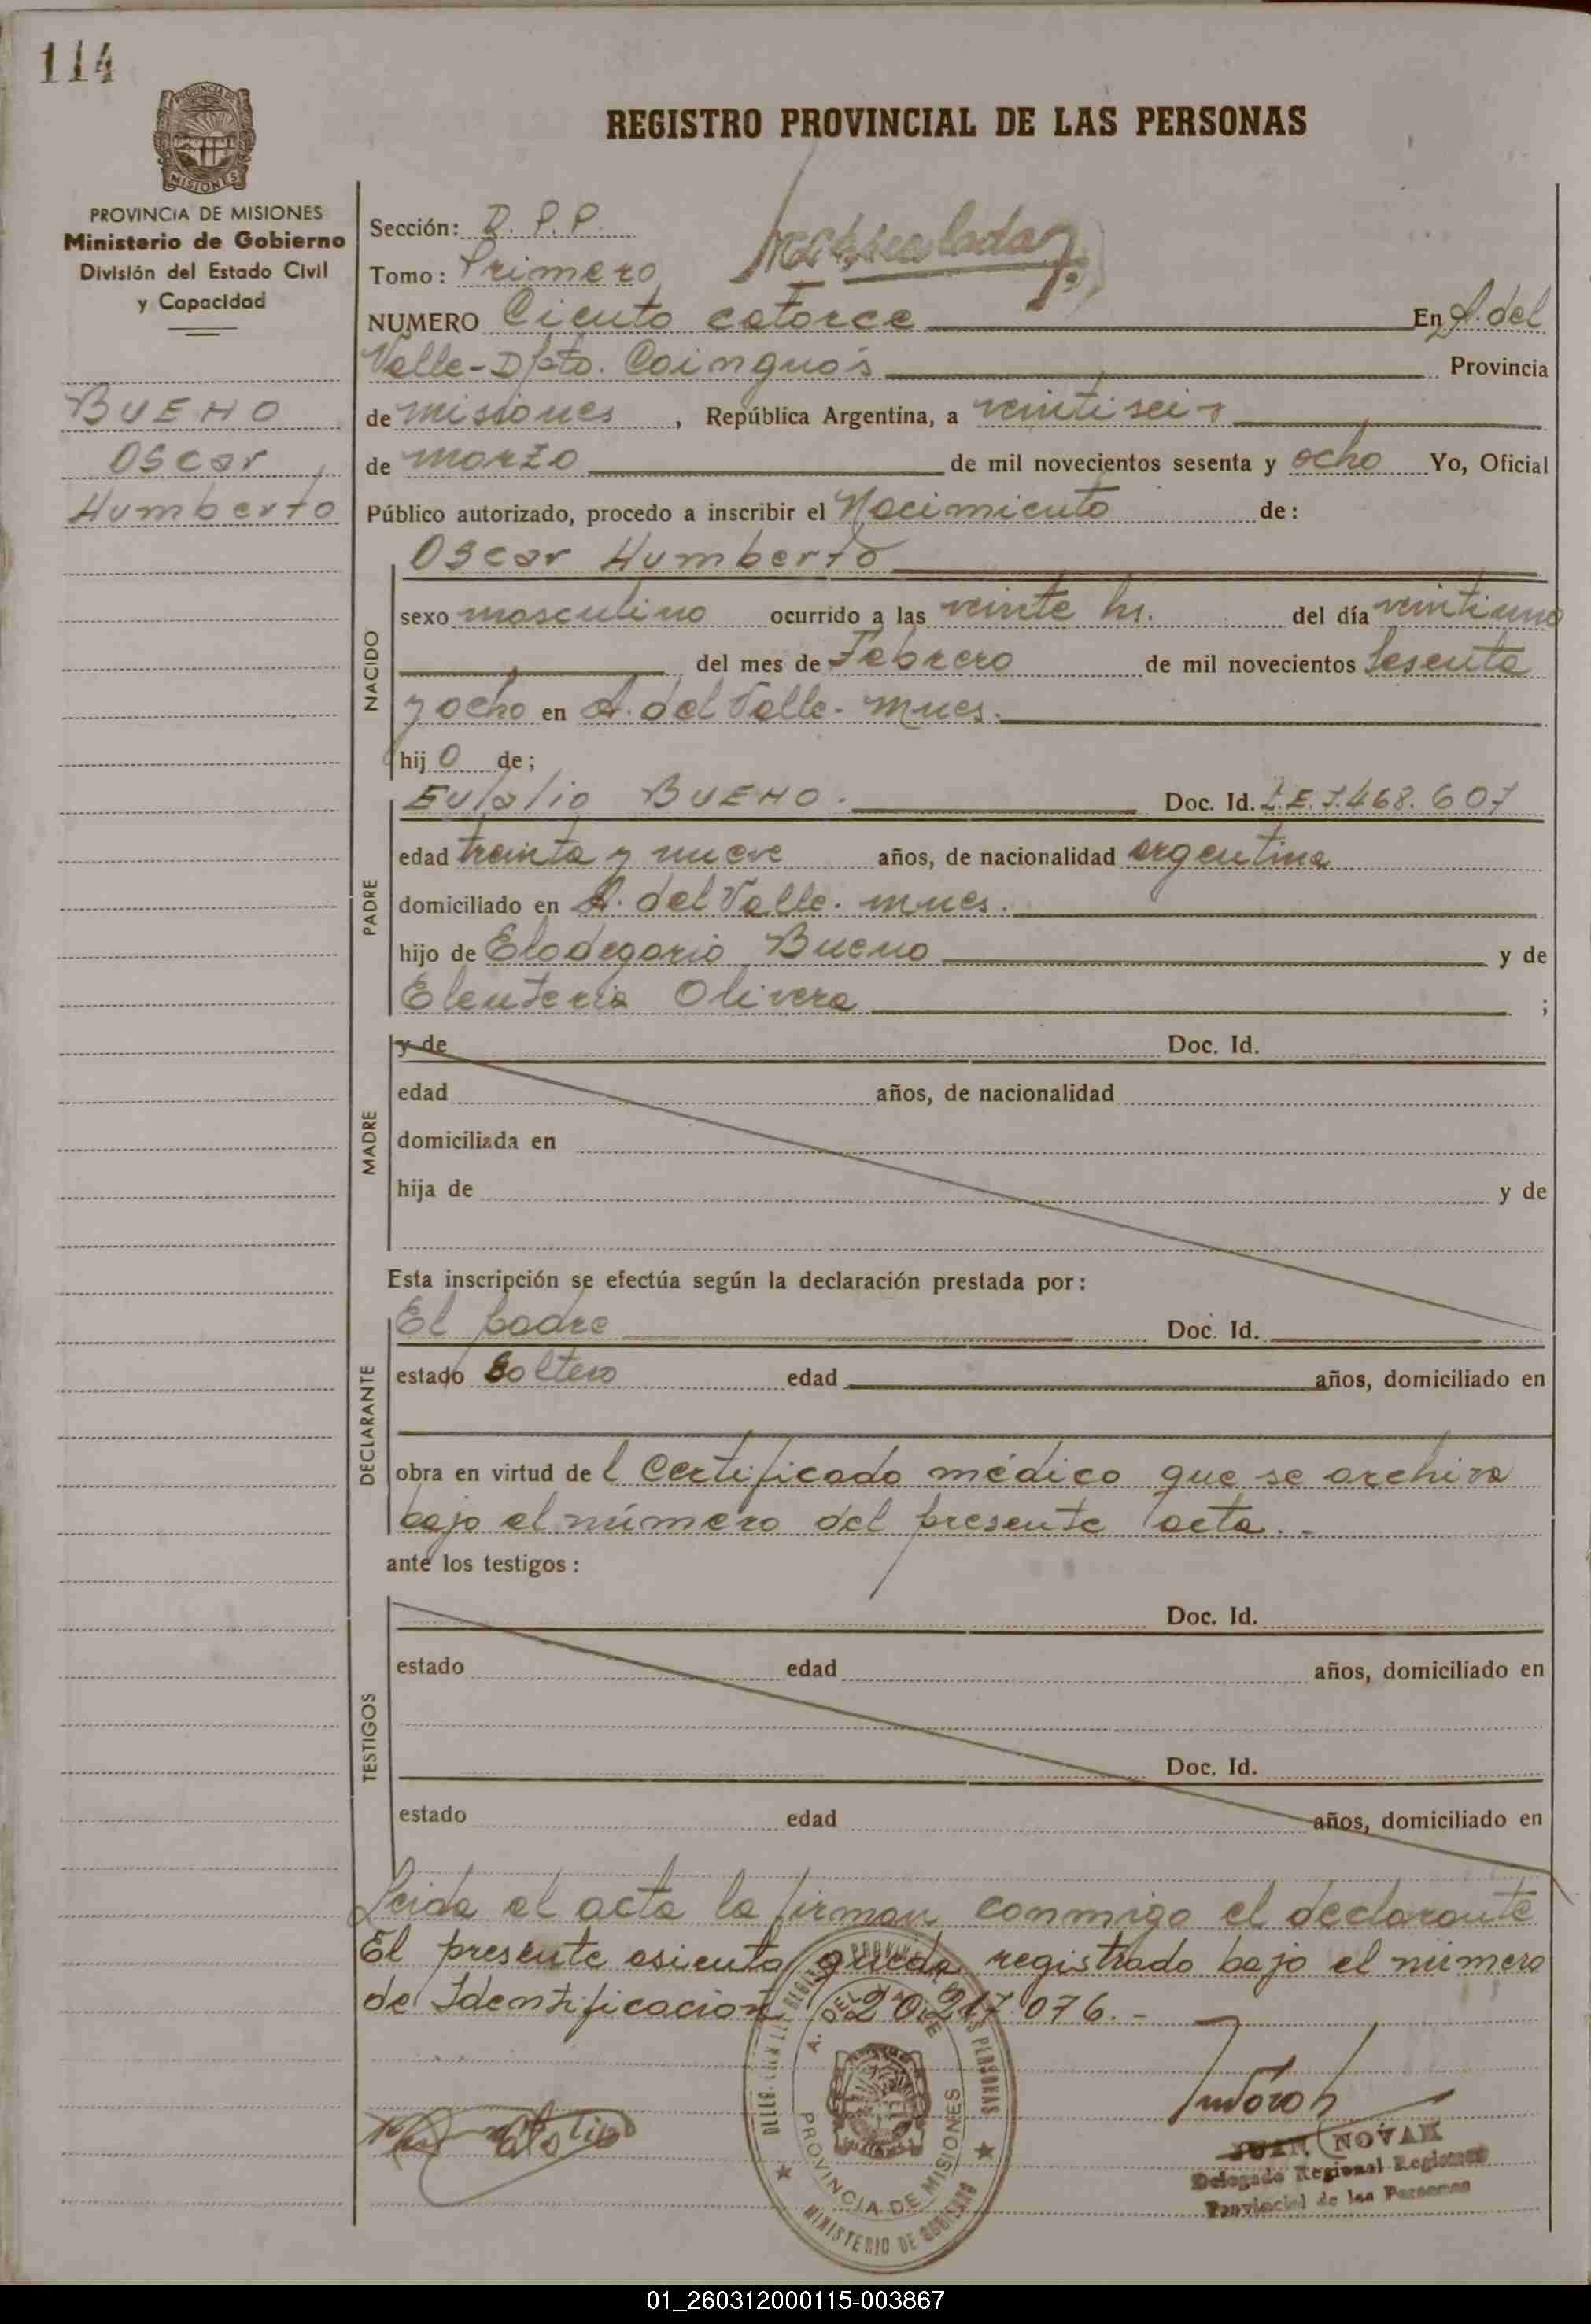 114
PROVINCIA DE MISIONES
Ministerio de Gobierno
División del Estado Civil
y Capacidad
BUENO
Oscar
Humberto
REGISTRO PROVINCIAL DE LAS PERSONAS
Sección: D. P. P.
Tomo: Primero
NUMERO Ciento catorce En A. del
Valle - Dpto. Cainguás Provincia
de misiones, República Argentina, a veintiseis
de marzo de mil novecientos sesenta y ocho Yo, Oficial
Público autorizado, procedo a inscribir el Nacimiento de:
NACIDO
Oscar Humberto
sexo masculino ocurrido a las veinte hs. del día veintiuno
del mes de Febrero de mil novecientos sesenta
y ocho en A. del Valle - Mnes.
hijo de;
PADRE
Eulalio BUENO. Doc. Id. L.E. 7.468.607
edad treinta y nueve años, de nacionalidad argentina
domiciliado en A. del Valle. mnes.
hijo de Elodegario Bueno y de
Eleuteria Olivera ;
MADRE
y de Doc. Id.
edad años, de nacionalidad
domiciliada en
hija de y de
Esta inscripción se efectúa según la declaración prestada por:
DECLARANTE
El padre Doc. Id.
estado soltero edad años, domiciliado en
obra en virtud del Certificado médico que se archiva
bajo el número del presente acta.-
ante los testigos:
TESTIGOS
Doc. Id.
estado edad años, domiciliado en
Doc. Id.
estado edad años, domiciliado en
Leida el acta la firman conmigo el declarante
El presente asiento queda registrado bajo el número
de Identificación 20.217.076.-
A. DEL VALLE
PROVINCIA DE MISIONES
MINISTERIO DE GOBIERNO
JUAN NOVAK
Delegado Regional Registro
Provincial de las Personas
01_260312000115-003867